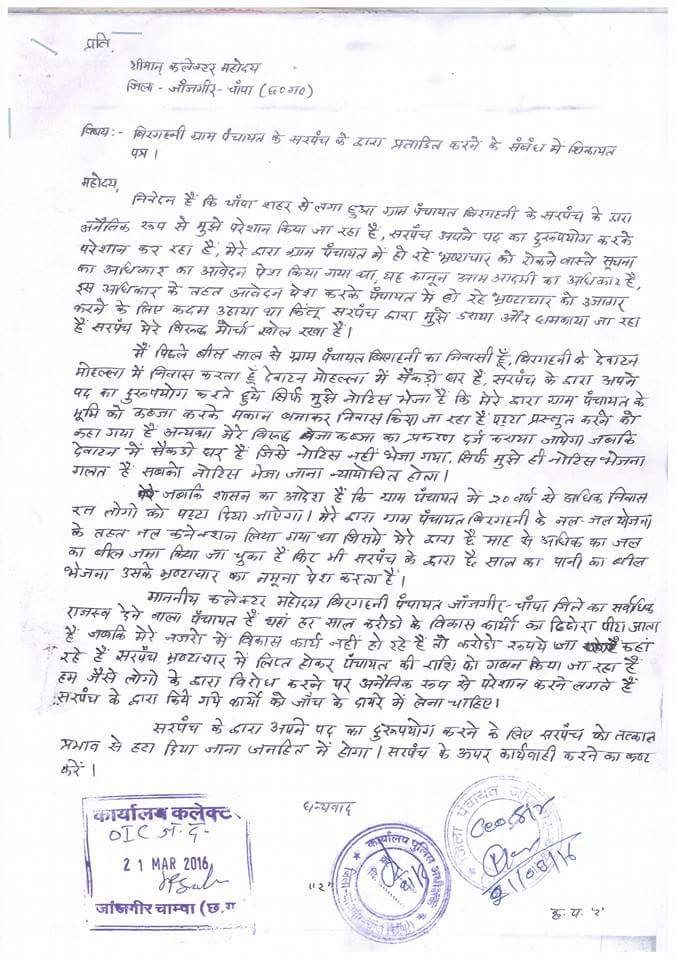 प्रति,
श्रीमान् कलेक्टर महोदय
जिला - जाँजगीर - चाँपा (छ०ग०)
विषय:- बिरगहनी ग्राम पंचायत के सरपंच के द्वारा प्रताडित करने के संबंध में शिकायत
पत्र ।
महोदय,
निवेदन है कि चाँपा शहर से लगा हुआ ग्राम पंचायत बिरगहनी के सरपंच के द्वारा
अनैतिक रूप से मुझे परेशान किया जा रहा है, सरपंच अपने पद का दुरूपयोग करके
परेशान कर रहा है, मेरे द्वारा ग्राम पंचायत में हो रहे भ्रष्टाचार को रोकने वास्ते सूचना
का अधिकार का आवेदन पेश किया गया था, यह कानून आम आदमी का अधिकार है,
इस अधिकार के तहत आवेदन पेश करके पंचायत में हो रहे भ्रष्टाचार को उजागर
करने के लिए कदम उठाया था किंतू सरपंच द्वारा मुझे डराया और धमकाया जा रहा
है सरपंच मेरे विरूद्ध मोर्चा खोल रखा है।
मैं पिछले बीस साल से ग्राम पंचायत बिरगहनी का निवासी हूँ, बिरगहनी के देवाटन
मोहल्ला में निवास करता हूँ देवाटन मोहल्ला में सैकड़ो घर हैं, सरपंच के द्वारा अपने
पद का दुरूपयोग करते हुये सिर्फ मुझे नोटिस भेजा है कि मेरे द्वारा ग्राम पंचायत के
भूमि को कब्जा करके मकान बनाकर निवास किया जा रहा है पट्टा प्रस्तुत करने को
कहा गया है अन्यथा मेरे विरूद्ध बेजा कब्जा का प्रकरण दर्ज कराया जायेगा जबकि
देवाटन में सैकडो घर हैं जिसे नोटिस नहीं भेजा गया, सिर्फ मुझे ही नोटिस भेजना
गलत है सबको नोटिस भेजा जाना न्यायोचित होगा।
जबकि शासन का आदेश है कि ग्राम पंचायत में 20 वर्ष से अधिक निवास
रत लोगो को पट्टा दिया जाएगा। मेरे द्वारा ग्राम पंचायत बिरगहनी के नल-जल योजना
के तहत नल कनेक्शन लिया गया था जिसमे मेरे द्वारा छै माह से अधिक का जल
का बील जमा किया जा चुका है फिर भी सरपंच के द्वारा छै साल का पानी का बील
भेजना उसके भ्रष्टाचार का नमूना पेश करता है।
माननीय कलेक्टर महोदय बिरगहनी पंचायत जाँजगीर-चाँपा जिले का सर्वाधिक
राजस्व देने वाला पंचायत है यहां हर साल करोडो के विकास कार्यो का ढिंढोरा पीटा जाता
है जबकि मेरे नजरो में विकास कार्य नहीं हो रहे हैं तो करोडो रूपये जा कहां
रहे हैं सरपंच भ्रष्टाचार में लिप्त होकर पंचायत की राशि को गबन किया जा रहा है
हम जैसे लोगो के द्वारा विरोध करने पर अनैतिक रूप से परेशान करने लगते हैं
सरपंच के द्वारा किये गये कार्यो को जाँच के दायरे में लेना चाहिए।
सरपंच के द्वारा अपने पद का दुरूपयोग करने के लिए सरपंच को तत्काल
प्रभाव से हटा दिया जाना जनहित में होगा। सरपंच के ऊपर कार्यवाही करने का कष्ट
करें ।
धन्यवाद
कार्यालय कलेक्ट
OIC ज.द.
21 MAR 2016
जांजगीर चाम्पा (छ.ग
कार्यालय पुलिस अधीक्षक
"2"
जिला पंचायत
21/03/16